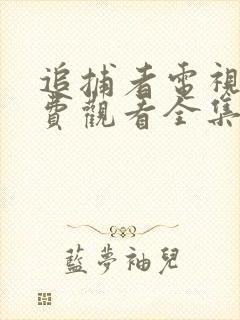 追捕者電視
費觀看全集
藍夢袖兒